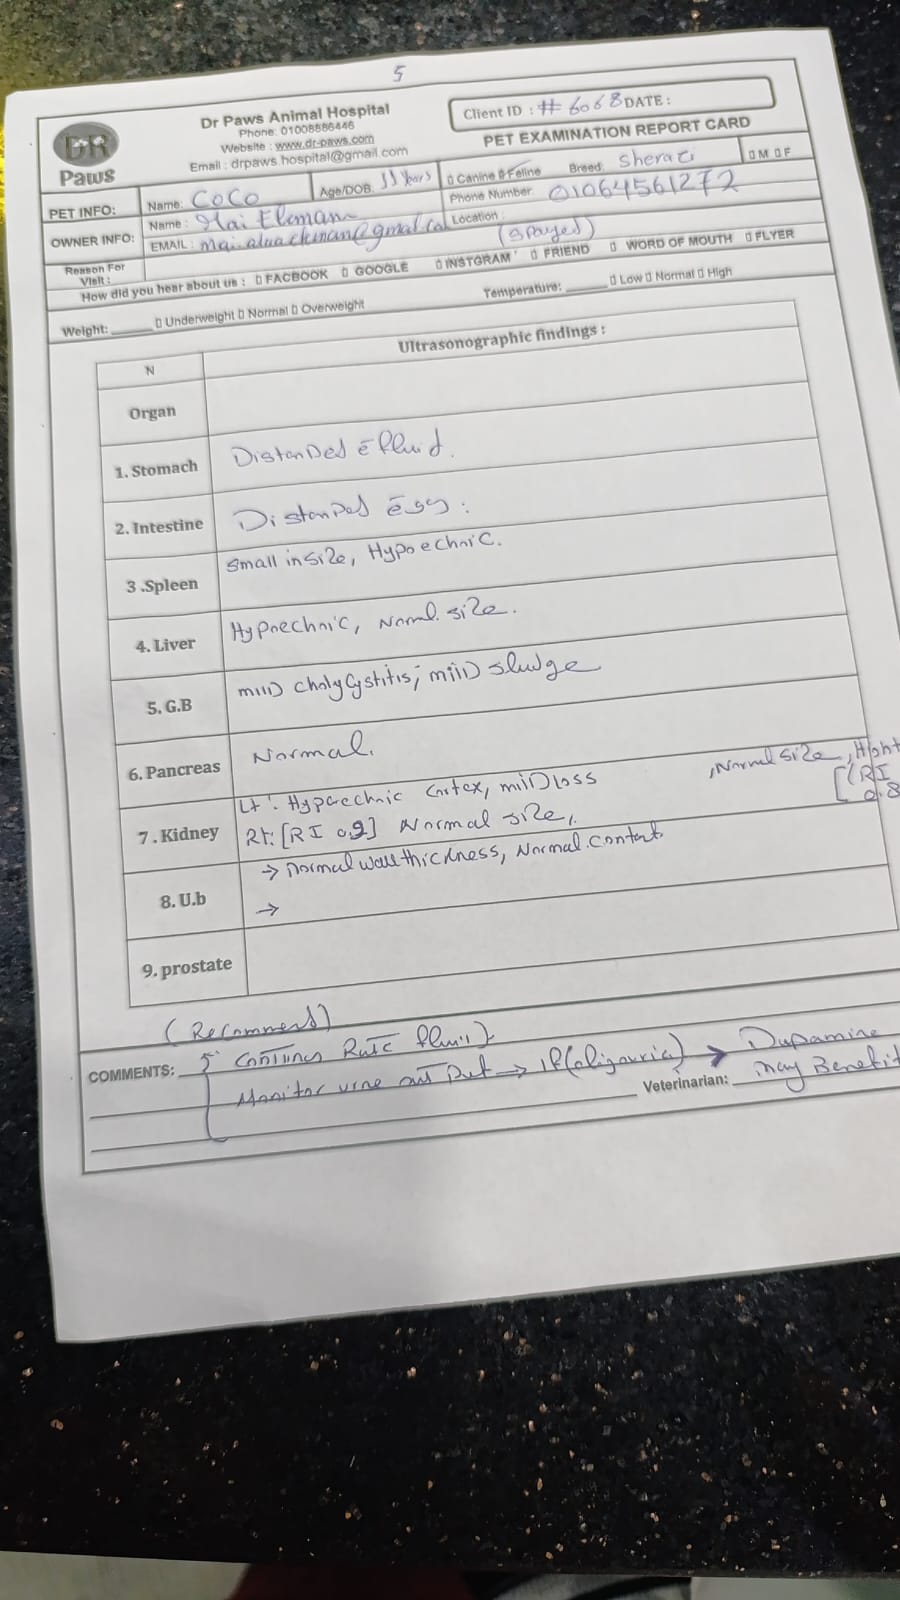 5
DR Paws
Dr Paws Animal Hospital
Phone: 01008886446
Website : www.dr-paws.com
Email : drpaws.hospital@gmail.com
Client ID : # 6068 DATE :
PET EXAMINATION REPORT CARD
PET INFO: Name: CoCo Age/DOB: 11 Years Canine Feline Breed: Sherazi M F
OWNER INFO: Name : Mai Phone Number: 01064561272
EMAIL : Location :
(spayed)
Reason For Visit :
How did you hear about us : FACBOOK GOOGLE INSTGRAM FRIEND WORD OF MOUTH FLYER
Weight: Underweight Normal Overweight Temperature: Low Normal High
N Ultrasonographic findings :
Organ
1. Stomach Distanded c̄ fluid.
2. Intestine Distanded
3 .Spleen small in size, Hypoechnic.
4. Liver size.
5. G.B milD sludge
6. Pancreas Normal.
7 . Kidney Lt : Cortex, milD loss ,Normal size,
[(RI 0.8
Rt: [RI 0.9] Normal size,
8. U.b → normal wall thickness, Normal.
→
9. prostate
(Recommend)
COMMENTS: Rate fluid
Monitor → If (oligouria) → Dopamine may Benefit
Veterinarian: